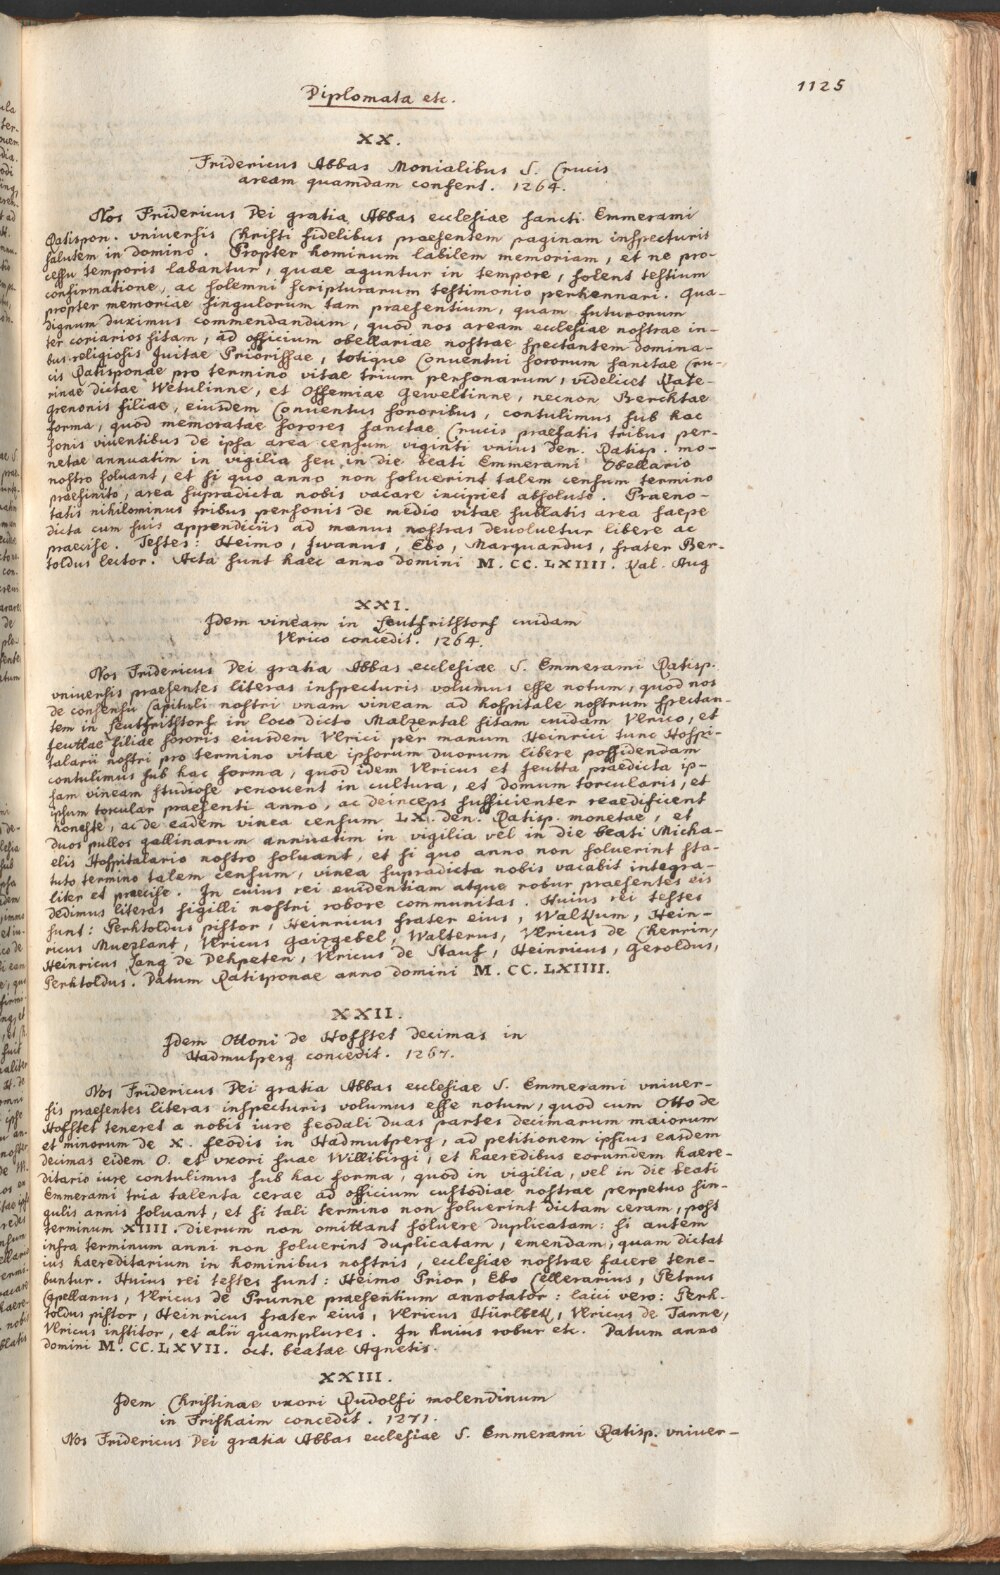 Diplomata etc.
1125
XX.
Fridericus Abbas Monialibus S. Crucis
aream quamdam confert. 1264.
Nos Fridericus Dei gratia Abbas ecclesiae sancti Emmerami
Ratispon. vniuersis Christi fidelibus praesentem paginam inspecturis
salutem in domino. Propter hominum labilem memoriam, et ne pro-
cessu temporis labantur, quae aguntur in tempore, solent testium
confirmatione, ac solemni scripturarum testimonio perhennari. Qua-
propter memoriae singulorum tam praesentium, quam futurorum
dignum duximus commendandum, quod nos aream ecclesiae nostrae in-
ter coriarios sitam, ad officium obellariae nostrae spectantem domina-
bus religiosis Juitae Priorissae, totique Conuentui sororum sanctae Cru-
cis Ratisponae pro termino vitae trium personarum, videlicet Kate-
rinae dictae Wetulinne, et Offemiae Geweltinne, necnon Berchtae
grenonis filiae, eiusdem Conuentus sororibus, contulimus sub hac
forma, quod memoratae sorores sanctae Crucis praefatis tribus per-
sonis viuentibus de ipsa area censum viginti vnius den. Ratisp. mo-
netae annuatim in vigilia seu in die beati Emmerami Obellario
nostro soluant, et si quo anno non soluerint talem censum termino
praefinito, area supradicta nobis vacare incipiet absolute. Praeno-
tatis nihilominus tribus personis de medio vitae sublatis area saepe
dicta cum suis appendiciis ad manus nostras deuoluetur libere ac
praecise. Testes: Heimo, Jwanus, Ebo, Marquardus, frater Ber-
toldus lector. Acta sunt haec anno domini M. CC. LXIIII. Kal. Aug
XXI.
Idem vineam in Seutfrithstorf cuidam
Vlrico concedit. 1264.
Nos Fridericus Dei gratia Abbas ecclesiae S. Emmerami Ratisp.
vniuersis praesentes literas inspecturis volumus esse notum, quod nos
de consensu Capituli nostri vnam vineam ad hospitale nostrum spectan-
tem in Seutfrithstorf in loco dicto Malzental sitam cuidam Vlrico, et
filiae sororis eiusdem Vlrici per manum Heinrici tunc Hospi-
talarii nostri pro termino vitae ipsorum duorum libere possidendam
contulimus sub hac forma, quod idem Vlricus et praedicta ip-
sam vineam studiose renouent in cultura, et domum torcularis, et
ipsum torcular praesenti anno, ac deinceps sufficienter reaedificent
honeste, ac de eadem vinea censum LX. den. Ratisp. monetae, et
duos pullos gallinarum annuatim in vigilia vel in die beati Micha-
elis Hospitalario nostro soluant, et si quo anno non soluerint sta-
tuto termino talem censum, vinea supradicta nobis vacabit integra-
liter et praecise. In cuius rei euidentiam atque robur praesentes eis
dedimus literas sigilli nostri robore communitas. Huius rei testes
sunt: Perhtoldus pistor, Heinricus frater eius, Walkum, Hein-
ricus Muezlant, Vlricus Gaizgebel, Walterus, Vlricus de Cherrin,
Heinricus Lang de Dehpeten, Vlricus de Stauf, Heinricus, Geroldus,
Perhtoldus. Datum Ratisponae anno domini M. CC. LXIIII.
XXII.
Idem Ottoni de Hofstet decimas in
Hadmutperg concedit. 1267.
Nos Fridericus Dei gratia Abbas ecclesiae S. Emmerami vniuer-
sis praesentes literas inspecturis volumus esse notum, quod cum Otto de
Hofstet teneret a nobis iure feodali duas partes decimarum maiorum
et minorum de X. feodis in Hadmutperg, ad petitionem ipsius easdem
decimas eidem O. et vxori suae Willibirgi, et haeredibus eorumdem haere-
ditario iure contulimus sub hac forma, quod in vigilia, vel in die beati
Emmerami tria talenta cerae ad officium custodiae nostrae perpetuo sin-
gulis annis soluant, et si tali termino non soluerint dictam ceram, post
terminum XIIII. dierum non omittant soluere duplicatam: si autem
infra terminum anni non soluerint duplicatam, emendam, quam dictat
ius haereditarium in hominibus nostris, ecclesiae nostrae facere tene-
buntur. Huius rei testes sunt: Heimo Prior, Ebo Cellerarius, Petrus
Capellanus, Vlricus de Prunne praesentium annotator: laici vero: Perh-
toldus pistor, Heinricus frater eius, Vlricus Hürlbek, Vlricus de Tanne,
Vlricus institor, et alii quamplures. In huius robur etc. Datum anno
domini M. CC. LXVII. oct. beatae Agnetis.
XXIII.
Idem Christinae vxori Rudolfi molendinum
in Frishaim concedit. 1271.
Nos Fridericus Dei gratia Abbas ecclesiae S. Emmerami Ratisp. vniuer-